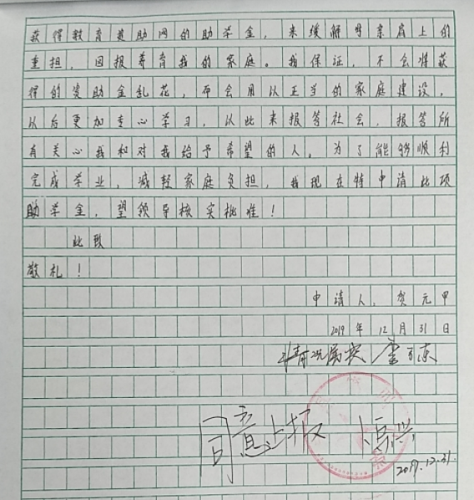 获得教育资助网的助学金，来缓解母亲肩上的
重担，回报养育我的家庭。我保证，不会将获
得的资助金乱花，而会用以正当的家庭建设，
以后更加专心学习，以此来报答社会，报答所
有关心我和对我给予希望的人。为了能够顺利
完成学业，减轻家庭负担，我现在特申请此项
助学金，望领导核实批准！
此致
敬礼！
申请人：贺元甲
2019年12月31日
情况属实
同意上报
2019.12.31.